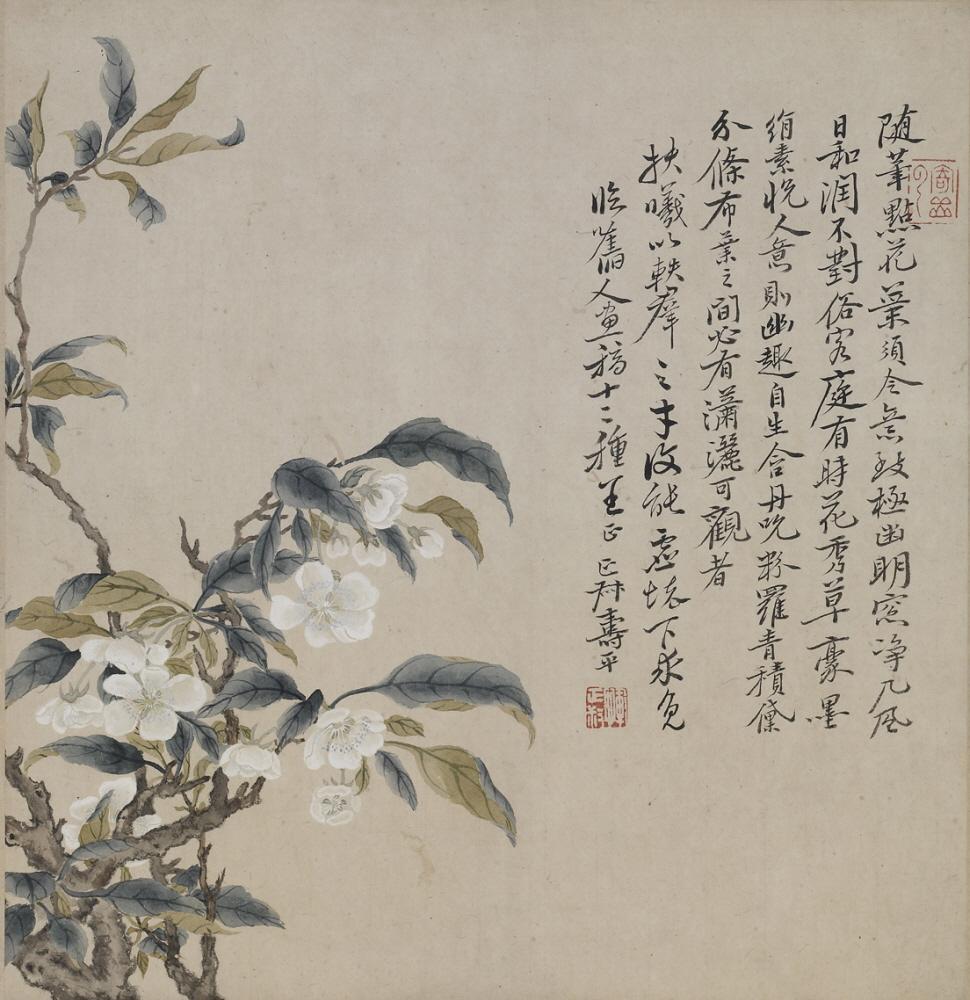 随筆點花葉須令無致極幽明窓净几風
日和润不對俗客庭有時花秀草豪墨
絹素悦人意則幽趣自生含丹吮粉羅青積黛
分條布葉之間必有瀟灑可觀者
扶曦以軼群之才後能虚怀下求
临舊人畫稿十二種 正叔壽平